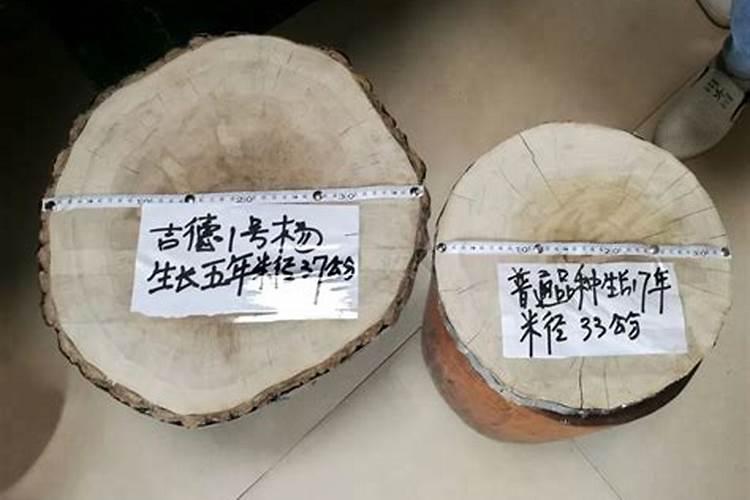 吉德1号杨
生长五年米径37公分
普通品种生长17年
米径 33公分
10 20 30
10 20